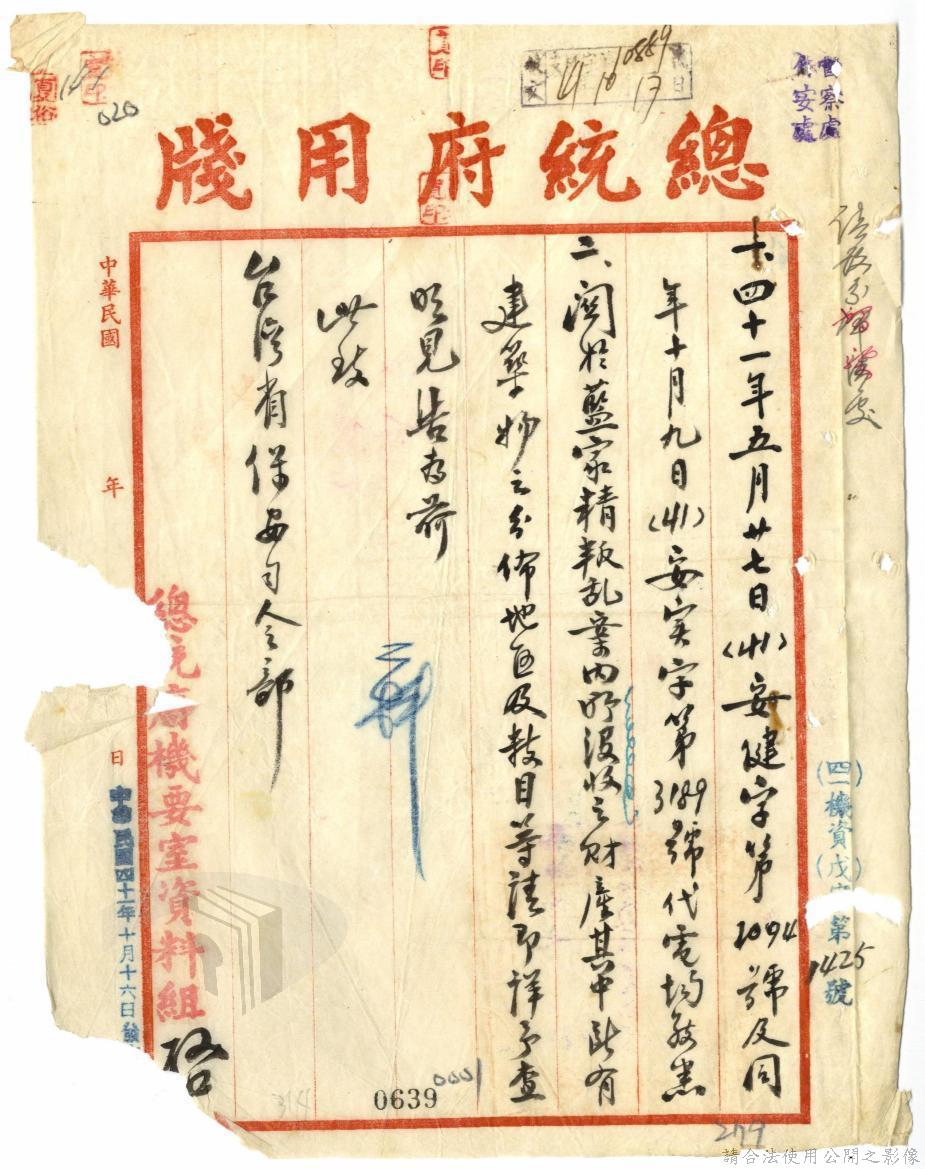 總統府用牋
10889
41 10 17
督察處
保安處
020
一、四十一年五月廿七日(41)安健字第2094號及同
年十月九日(41)安宲字第3189號代電均敬悉
二、関於藍家精叛乱案内所没收之財產其中所有
建築物之分佈地区及数目等請即詳予查
明見告為荷
此致
台湾省保安司令部
中華民國
年
日
總統府機要室資料組
啓
中華民國四十一年十月十六日發
(四一)機資(戊)
第1425號
0639
0001
279
請合法使用公開之影像